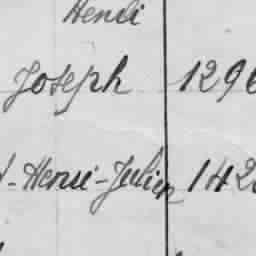 Henri
Joseph 1296
- Henri - Julien 142